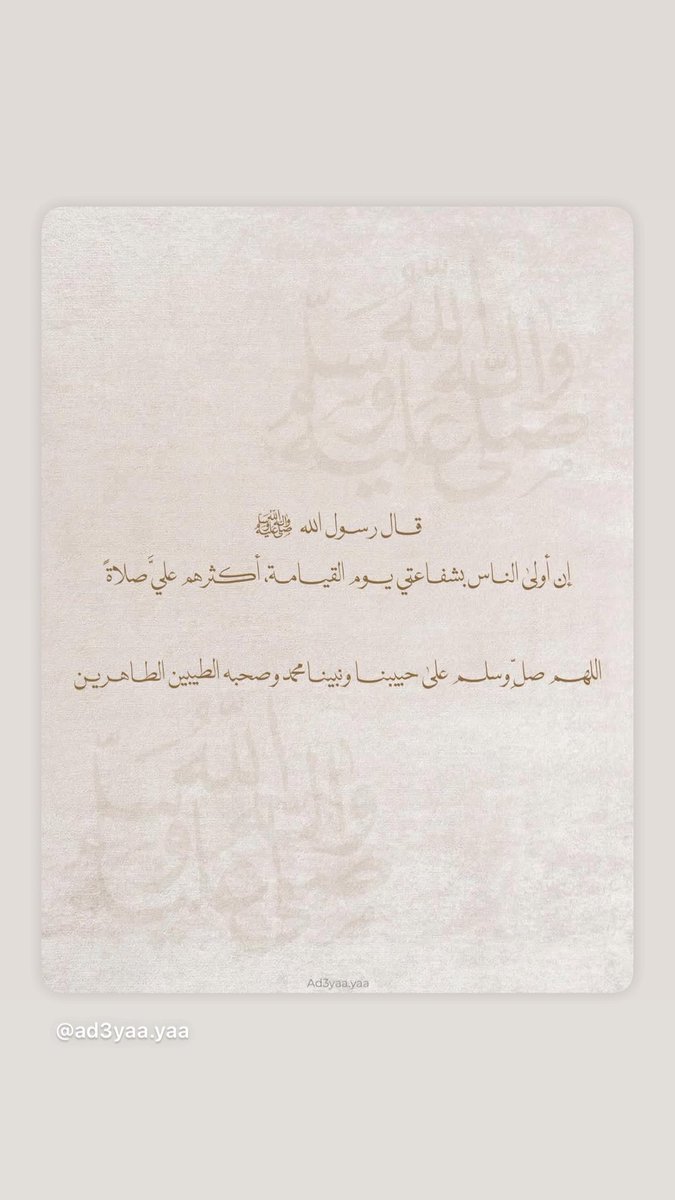 صلى الله عليه وآله وسلم
قال رسول الله ﷺ
إن أولىٰ الناس بشفاعتي يوم القيامة، أكثرهم عليَّ صلاةً
اللهم صلِّ وسلم علىٰ حبيبنا ونبينا محمد وصحبه الطيبين الطاهرين
صلى الله عليه وآله وسلم
Ad3yaa.yaa
@ad3yaa.yaa